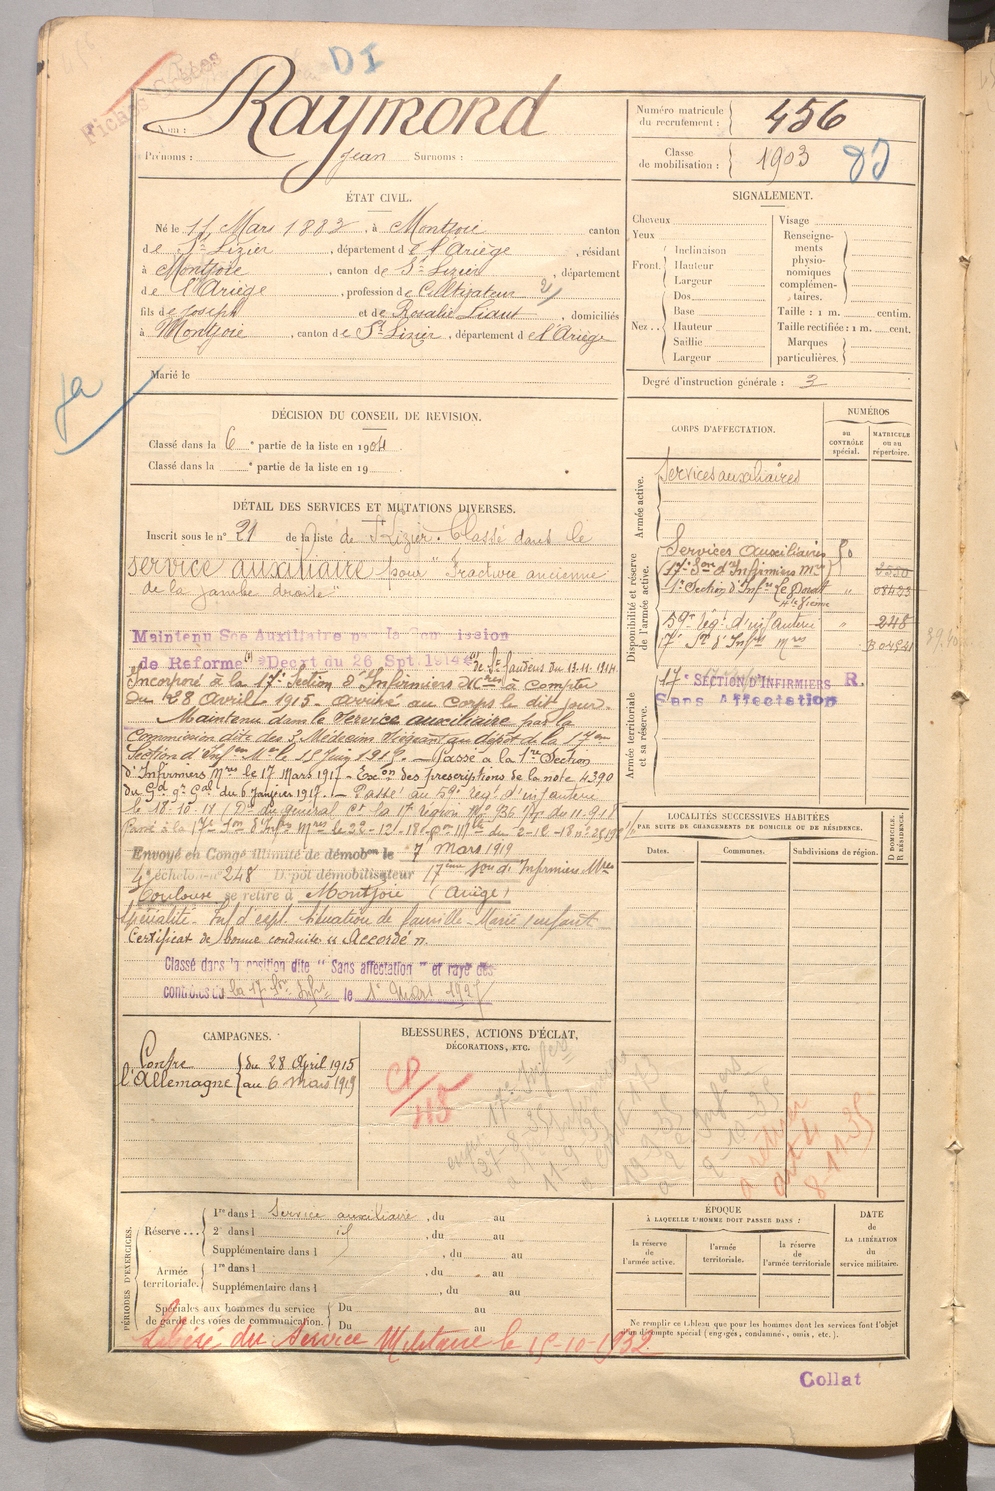 DI
Fiches
Nom : Raymond
Prénoms : Jean Surnoms :
Numéro matricule du recrutement : 456
Classe de mobilisation : 1903
ÉTAT CIVIL.
Né le Mars 1883, à Montjoie canton
de St Lizier, département de l'Ariège, résidant
à Montjoie, canton de St Lizier, département
de l'Ariège, profession de Cultivateur
fils de Joseph et de Rosalie, domiciliés
à Montjoie, canton de St Lizier, département de l'Ariège
Marié le
ja
SIGNALEMENT.
Cheveux
Yeux
Front. Inclinaison
Hauteur
Largeur
Nez Dos
Base
Hauteur
Saillie
Largeur
Visage
Renseignements physionomiques complémentaires.
Taille : 1 m. centim.
Taille rectifiée : 1 m. cent.
Marques particulières.
Degré d'instruction générale : 3
DÉCISION DU CONSEIL DE REVISION.
Classé dans la 6e partie de la liste en 1904
Classé dans la e partie de la liste en 19
DÉTAIL DES SERVICES ET MUTATIONS DIVERSES.
Inscrit sous le n° 21 de la liste de St Lizier. Classé dans le
service auxiliaire pour "Fracture ancienne
de la jambe droite"
Maintenu Sce Auxiliaire par la Commission
de Reforme Decrt du 26 Spt. 1914 de St Gaudens du 13.11.1914
Incorporé à la 17e Section d'Infirmiers Mres à compter
du 28 Avril 1915. Arrivé au corps le dit jour.
Maintenu dans le Service auxiliaire par la
Commission dite des 3 Médecins siégeant au dépôt de la 17em
Section d'Infen Mre le 15 Juin 1915. Passé à la 1re Section
d'Infirmiers Mres le 17 Mars 1917 - Exon des prescriptions de la note 4390
du Gd Qr Gal du 6 Janvier 1917. Passé au 59e régt d'infanterie
le 18-10-17 (Don du général Ct la 17e région
Passé à la 17e Son d'Infirs Mres le
Envoyé en Congé illimité de démobon le 7 Mars 1919
4e échelon n° 248 Dépôt démobilisateur 17ème Son d'Infirmiers Mres
Toulouse se retire à Montjoie (Ariège)
Spécialité - Inf d'expl. Situation de famille - Marié 1 enfant
Certificat de bonne conduite "Accordé".
Classé dans la position dite " Sans affectation " et rayé des
contrôles de la 17 Son Infrs le 1er Mars 1927
CORPS D'AFFECTATION.
NUMÉROS
au CONTRÔLE spécial.
MATRICULE ou au répertoire.
Armée active.
Services auxiliaires
Disponibilité et réserve de l'armée active.
Services Auxiliaires
17e Son d'Infirmiers Mres
1e Section d'Infrs Le Dorat "
Hte Vienne
59e régt d'infanterie " 248
17e St d'Infs Mres
Armée territoriale et sa réserve.
17e SECTION D'INFIRMIERS R.
Sans Affectation
LOCALITÉS SUCCESSIVES HABITÉES
PAR SUITE DE CHANGEMENTS DE DOMICILE OU DE RÉSIDENCE.
Dates.
Communes.
Subdivisions de région.
D DOMICILE. R RÉSIDENCE.
CAMPAGNES.
Contre l'Allemagne du 28 April 1915
au 6 Mars 1919
BLESSURES, ACTIONS D'ÉCLAT,
DÉCORATIONS, ETC.
CP/45
8-11-35
PÉRIODES D'EXERCICES.
Réserve... 1re dans l Service auxiliaire, du au
2e dans l id, du au
Supplémentaire dans l , du au
Armée territoriale. 1re dans l , du au
Supplémentaire dans l , du au
Spéciales aux hommes du service de garde des voies de communication. Du au
Du au
ÉPOQUE
À LAQUELLE L'HOMME DOIT PASSER DANS :
la réserve de l'armée active.
l'armée territoriale.
la réserve de l'armée territoriale
DATE de LA LIBÉRATION du service militaire.
Ne remplir ce tableau que pour les hommes dont les services font l'objet d'un décompte spécial (engagés, condamnés, omis, etc.).
Libéré du Service Militaire le 15-10-1932
Collat